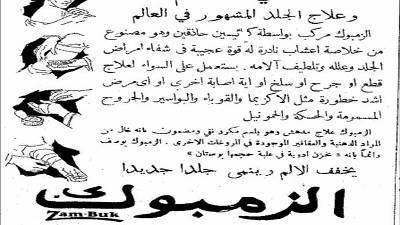 وعلاج الجلد المشهور في العالم
الزمبوك مركب بواسطة كيتيسين حاذقين وهو مصنوع
من خلاصة اعشاب نادره له قوة عجيبة في شفاء امراض
الجلد وعلله وتلطيف آلامه. يستعمل على السواء لعلاج
قطع او جرح او سلخ او اية اصابة اخرى او اى مرض
اشد خطورة مثل الاكزيما والقوباء والبواسير والجروح
المسمومة والحكة والحمو نيل
الزمبوك علاج مدهش وهو بلسم مكرر نقي ومضمون بانه خال من
المواد الدهنية والعقاقير الموجودة في الروغات الاخرى. الزمبوك يوصف
دائماً بانه « خزن ادوية في علبة حجمها بوستان »
يخفف الالم وينمى جلدا جديدا
الزمبوك
Zam-Buk